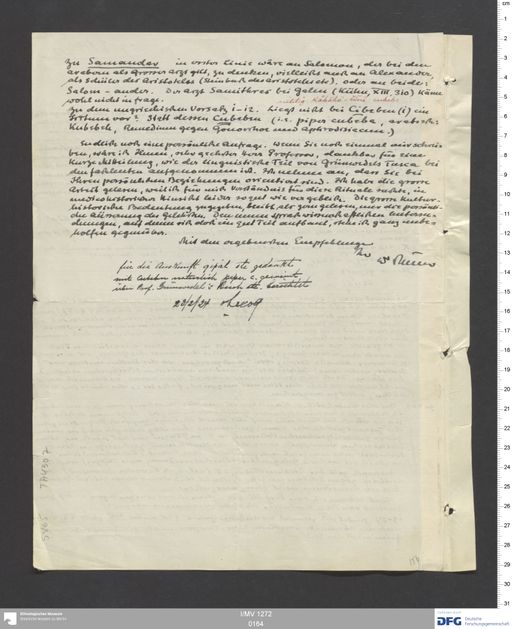 Zu Samandar in erster Linie wäre an Salomon, der bei den
Arabern als grosser Arzt gilt, zu denken, vielleicht auch an Alexander,
als Schüler des Aristoteles (Steinbuch des Aristoteles etc). oder an beide:
Salom - ander. Der Arzt Samithres bei Galen (Kühn, XIII. 310) käme
wohl nicht in frage.
Zu dem uigurischen Vorsatz i-iz. Liegt nicht bei Cibeben (i) ein
Irrtum vor? Statt dessen Cubeben (i.e. piper cubeba, arabisch:
Kubebeh, Remedium gegen Gonorrhoe und Aphrodisiacum.)
Endlich noch eine persönliche Anfrage. Wenn Sie noch einmal aus schrei-
ben, wäre ich Ihnen, sehr geehrter Herr Professor, dankbar für eine
kurze Mitteilung, wie der linguistische Teil von Grünwedels Tusca bei
den fachleuten aufgenommen ist. Ich nehme an, dass Sie bei
Ihren persönlichen Beziehungen orientiert sind. Ich habe die grosse
Arbeit gelesen, weil ich für mein Verständnis für diese Rituale suchte, in
medicohistorischer Hinsicht leider so gut wie vergeblich. Die grosse kultur-
historische Bedeutung zugegeben, bleibt, als ganz gelesen, nur die persönli-
che Äusserung des Gelehrten. Den neuen sprachwissenschaftlichen Entzer-
dungen, auf denen sich doch ein gut Teil aufbaut, stehe ich ganz unbe-
holfen gegenüber.
Mit den ergebensten Empfehlungen
Ihr
für die Auskunft gefäl. etc gedankt.
mit Cubeben natürlich piper c. gemeint,
über Prof. Grünwedel's Buch etc. berichtet
23/2/24 v Lecoq
I/MV 1272
0164
Ethnologisches Museum
DFG Deutsche
Forschungsgemeinschaft